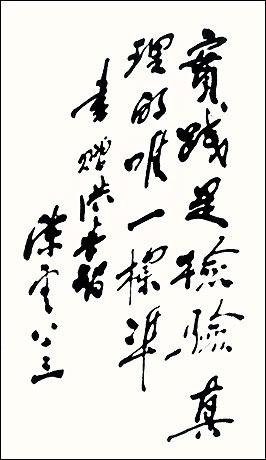 實踐是檢驗真
理的唯一標準
書贈洪
陳雲 八三